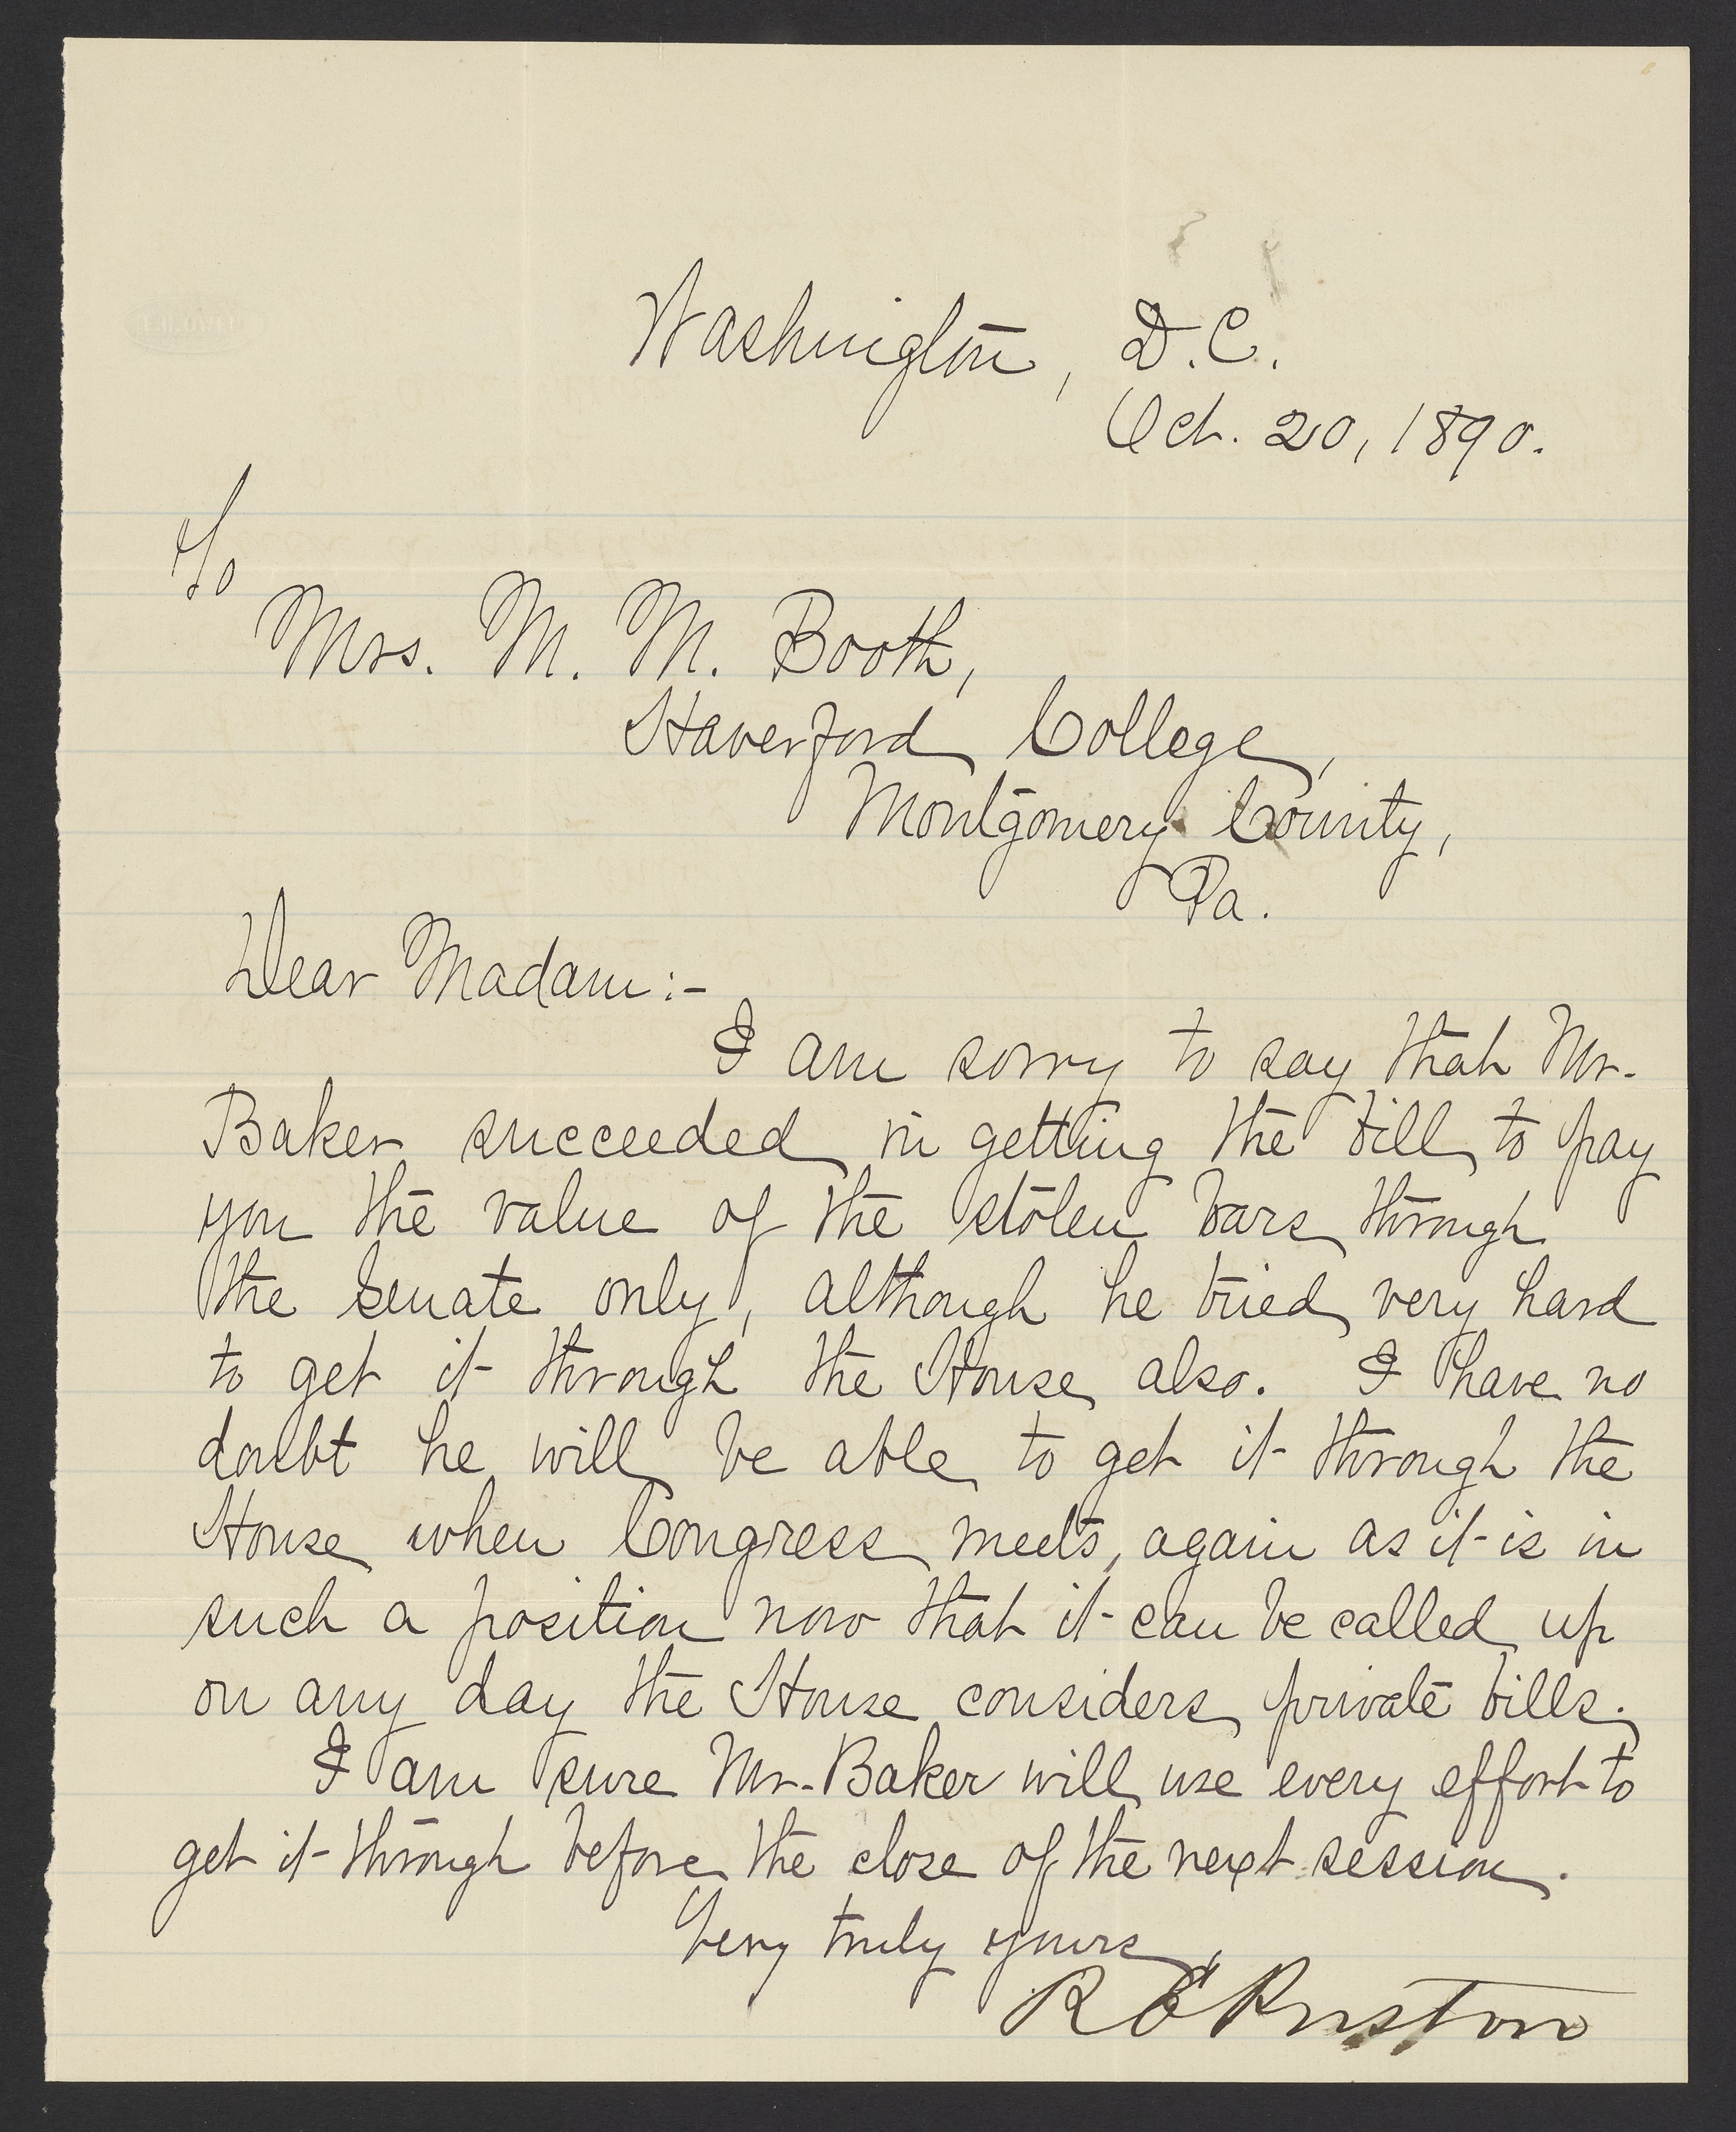 Washington, D.C.
Oct. 20, 1890.
To
Mrs. M. M. Booth,
Haverford College,
Montgomery County,
Pa.
Dear Madam:-
I am sorry to say that Mr.
Baker succeeded in getting the bill to pay
you the value of the stolen bars through
the Senate only, although he tried very hard
to get it through the House also. I have no
doubt he will be able to get it through the
House when Congress meets, again as it is in
such a position now that it can be called up
on any day the House considers private bills.
I am sure Mr. Baker will use every effort to
get it through before the close of the next session.
Very truly yours,
R E Preston